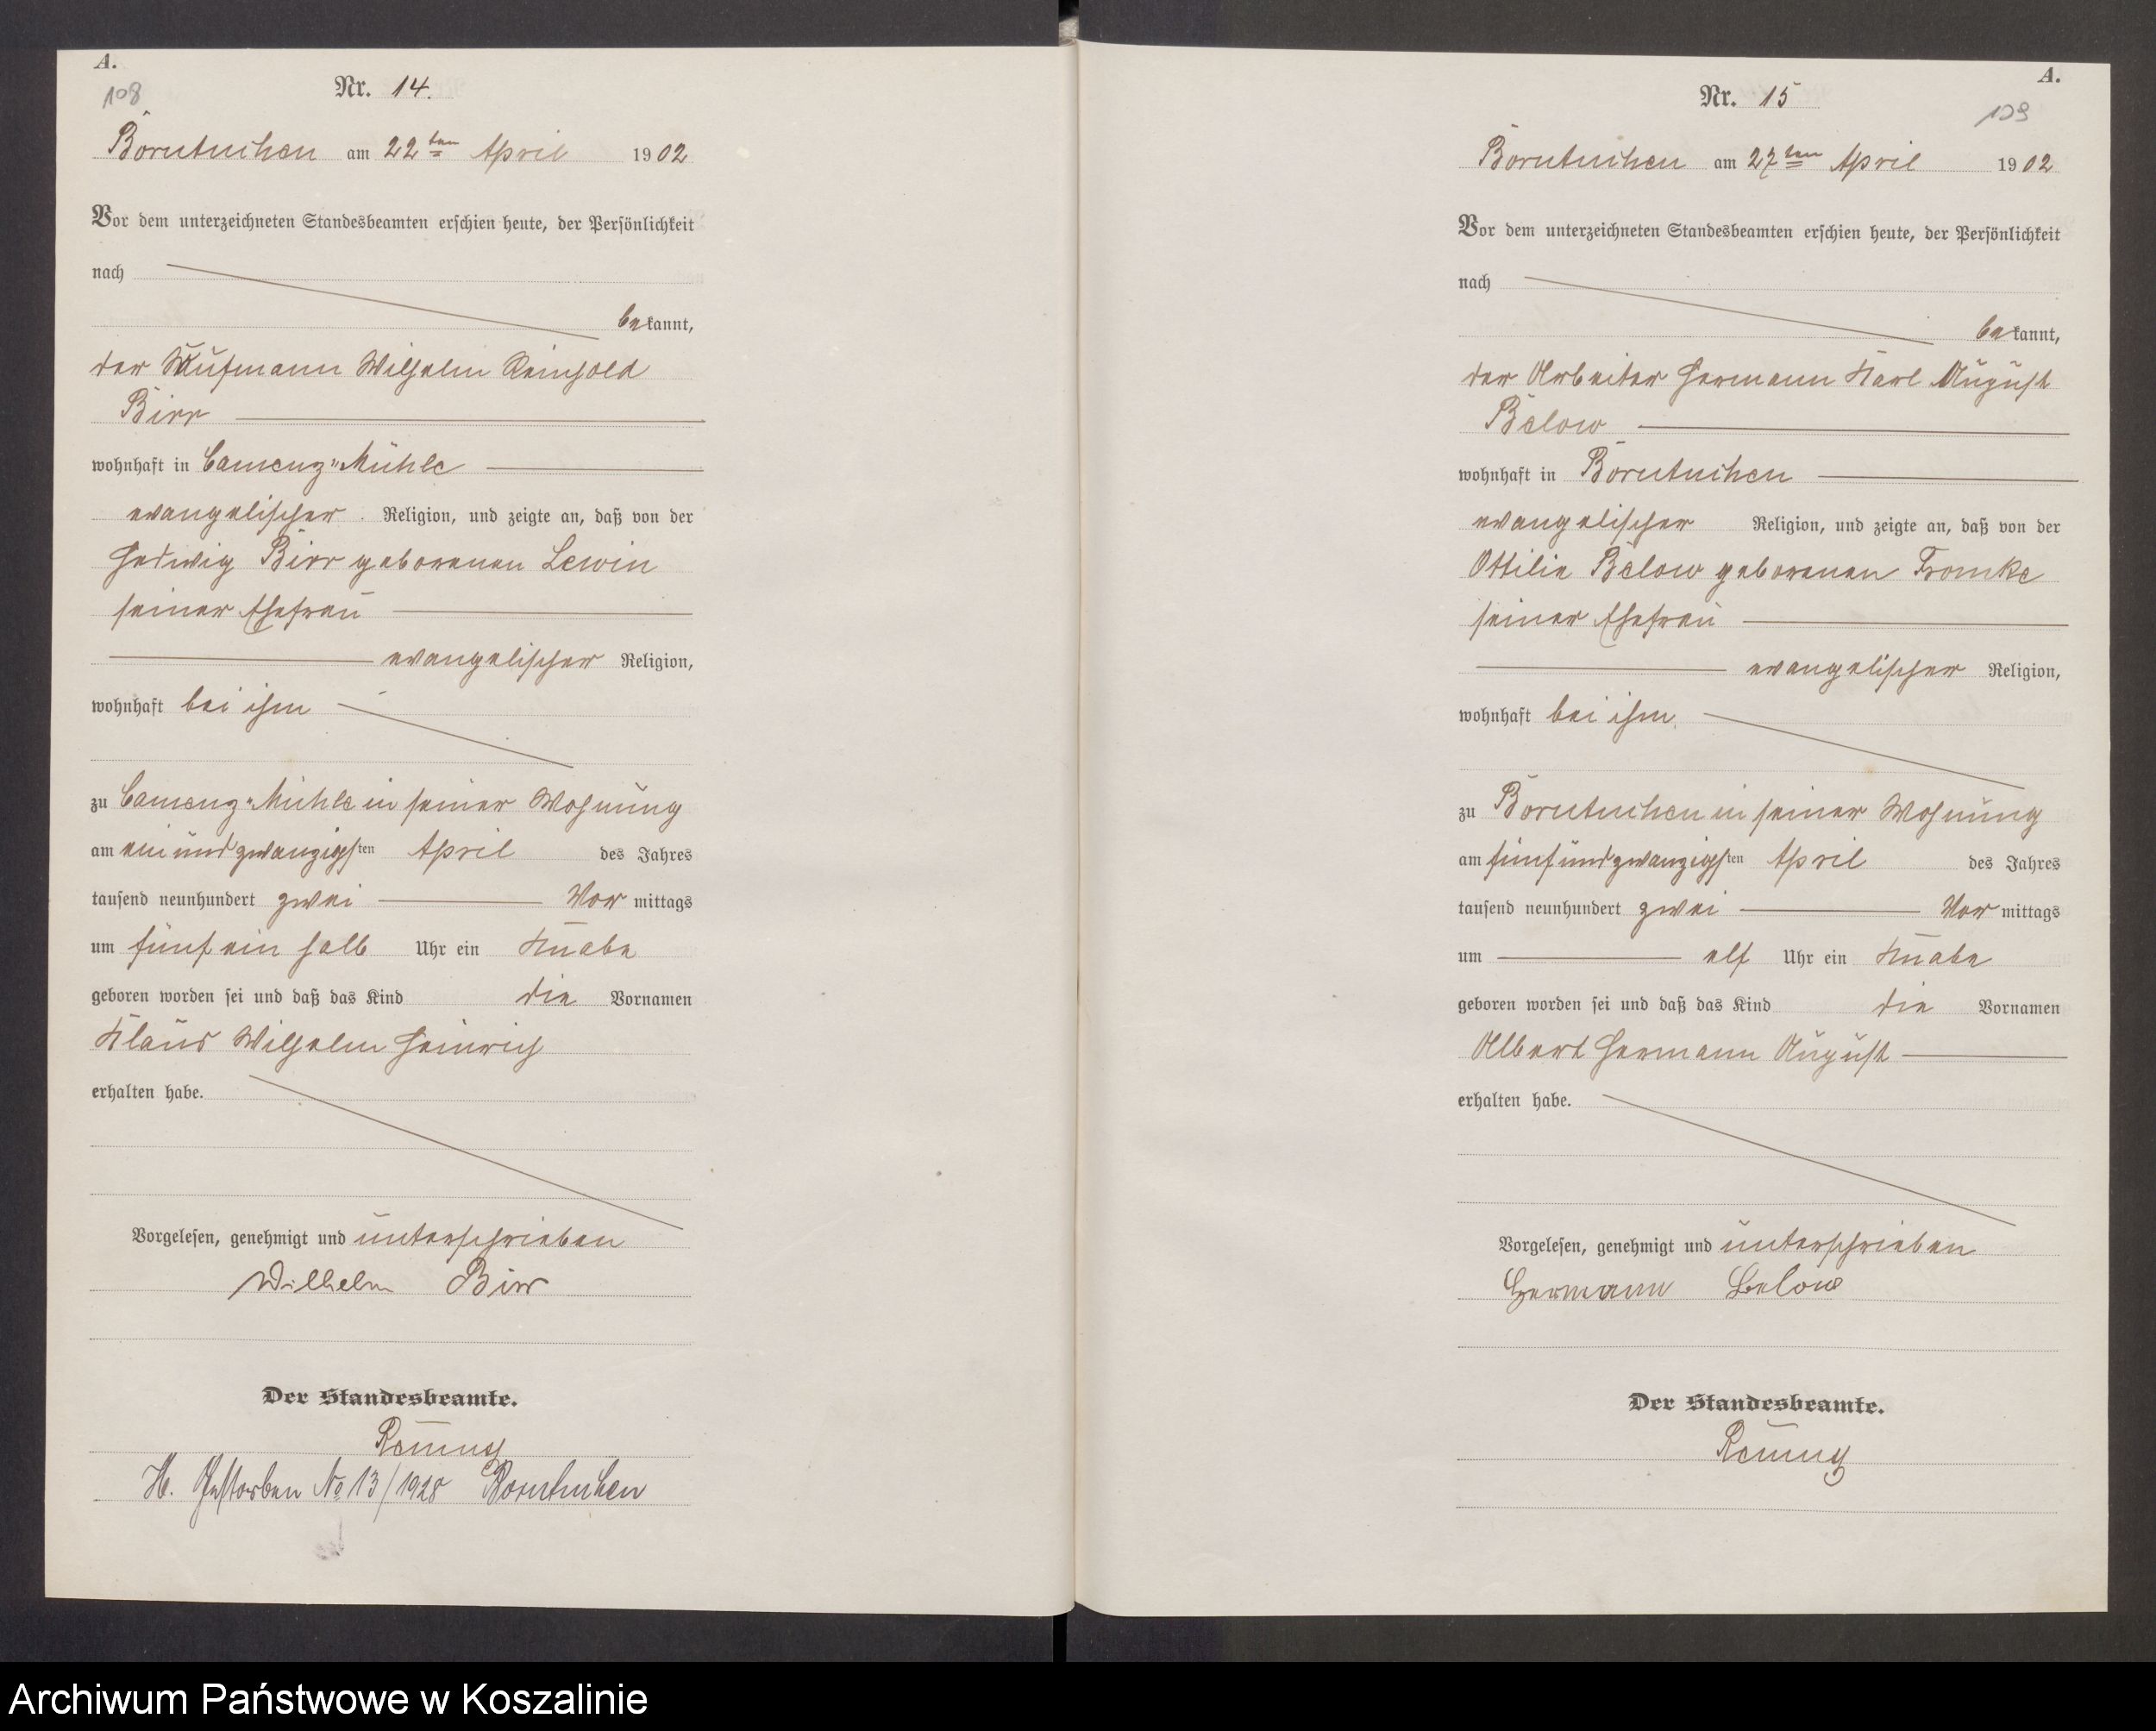 A.
108
Nr. 14.
Borntuchen am 22ten April 1902
Vor dem unterzeichneten Standesbeamten erschien heute, der Persönlichkeit
nach
bekannt,
der Kaufmann Wilhelm Reinhold
Birr
wohnhaft in Camenz-Mühle
evangelischer Religion, und zeigte an, daß von der
Hedwig Birr geborenen Lewin
seiner Ehefrau
evangelischer Religion,
wohnhaft bei ihm
zu Camenz-Mühle in seiner Wohnung
am ein und zwanzigsten April des Jahres
tausend neunhundert zwei Vor mittags
um fünf ein halb Uhr ein Knabe
geboren worden sei und daß das Kind die Vornamen
Klaus Wilhelm Heinrich
erhalten habe.
Vorgelesen, genehmigt und unterschrieben
Wilhelm Birr
Der Standesbeamte.
H. Gestorben No 13/1928 Borntuchen
A.
109
Nr. 15
Borntuchen am 27ten April 1902
Vor dem unterzeichneten Standesbeamten erschien heute, der Persönlichkeit
nach
bekannt,
der Arbeiter Hermann Karl August
Below
wohnhaft in Borntuchen
evangelischer Religion, und zeigte an, daß von der
Ottilie Below geborenen Fromke
seiner Ehefrau
evangelischer Religion,
wohnhaft bei ihm
zu Borntuchen in seiner Wohnung
am fünf und zwanzigsten April des Jahres
tausend neunhundert zwei Vor mittags
um elf Uhr ein Knabe
geboren worden sei und daß das Kind die Vornamen
Albert Hermann August
erhalten habe.
Vorgelesen, genehmigt und unterschrieben
Hermann Below
Der Standesbeamte.
Archiwum Państwowe w Koszalinie